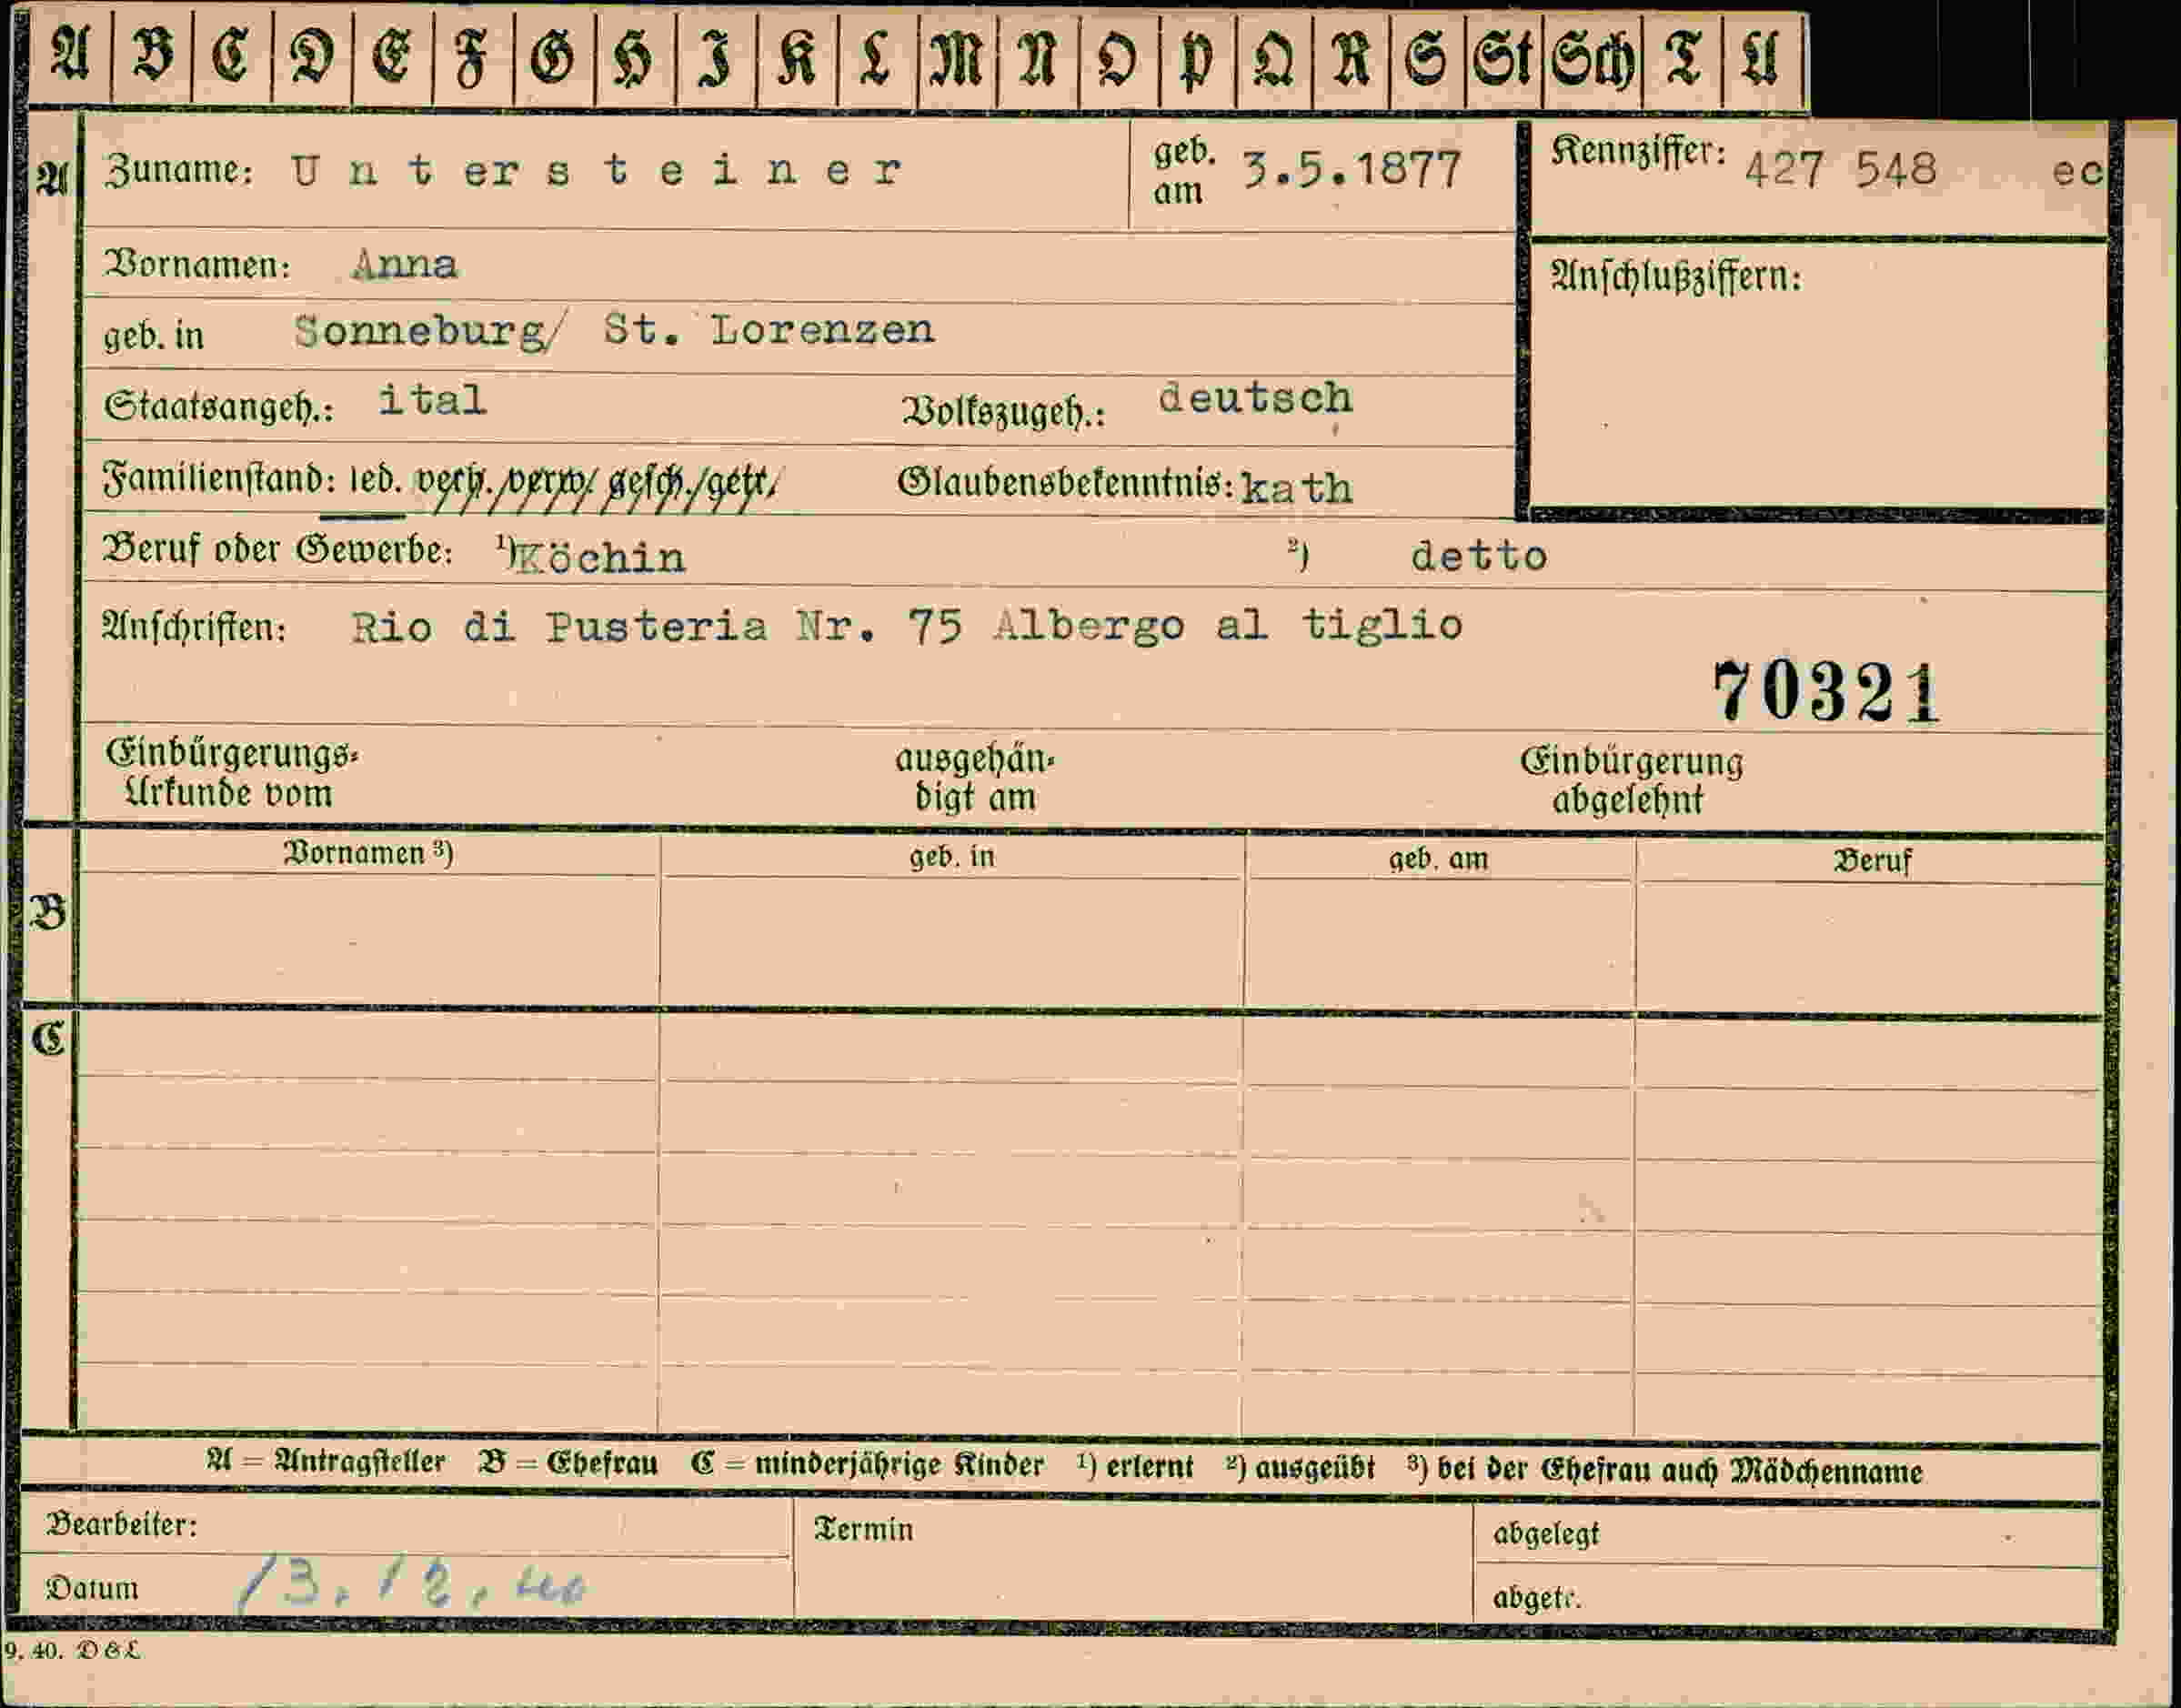 A B C D E F G H I K L M N O P Q R S St Sch T U
A Zuname: Untersteiner geb. am 3.5.1877 Kennziffer: 427 548 ec
Vornamen: Anna Anschlußziffern:
geb. in Sonneburg/ St. Lorenzen
Staatsangeh.: ital Volkszugeh.: deutsch
Familienstand: led. verh./verw/ gesch./getr. Glaubensbekenntnis: kath
Beruf oder Gewerbe: ¹)Köchin ²) detto
Anschriften: Rio di Pusteria Nr. 75 Albergo al tiglio
70321
Einbürgerungs- ausgehän- Einbürgerung
Urkunde vom digt am abgelehnt
Vornamen ³) geb. in geb. am Beruf
B
C
A = Antragsteller B = Ehefrau C = minderjährige Kinder ¹) erlernt ²) ausgeübt ³) bei der Ehefrau auch Mädchenname
Bearbeiter: Termin abgelegt
Datum 13.12.40 abgetr.
9. 40. D&L